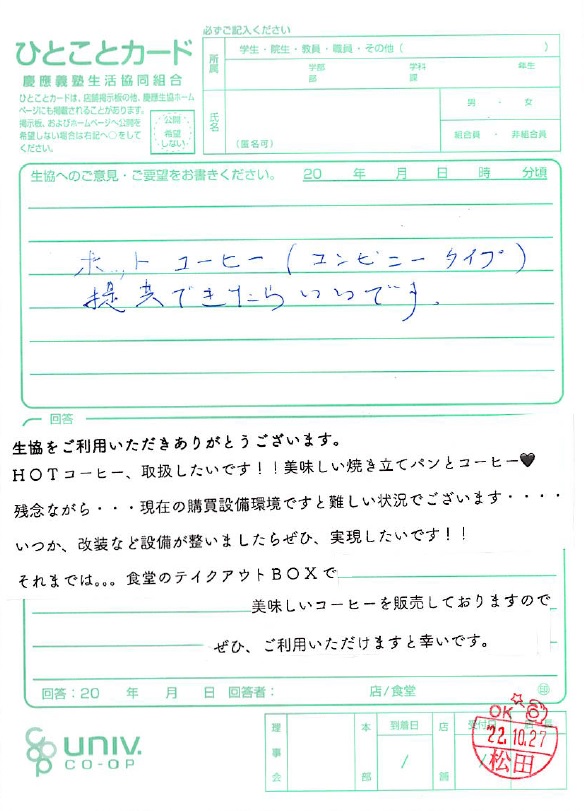 必ずご記入ください
ひとことカード
慶應義塾生活協同組合
ひとことカードは、店舗掲示板の他、慶應生協ホーム
ページにも掲載されることがあります。
掲示板、およびホームページへ公開を
希望しない場合は右記へ○をして
ください。
公開
希望
しない
所属
学生・院生・教員・職員・その他（　　　）
学部　学科　年生
部　課
氏名
（匿名可）
男 ・ 女
組合員 ・ 非組合員
生協へのご意見・ご要望をお書きください。　20　年　月　日　時　分頃
ホット コーヒー（コンビニータイプ）
提共できたらいいです.
回答
生協をご利用いただきありがとうございます。
ＨＯＴコーヒー、取扱したいです！！美味しい焼き立てパンとコーヒー♥
残念ながら・・・現在の購買設備環境ですと難しい状況でございます・・・・
いつか、改装など設備が整いましたらぜひ、実現したいです！！
それまでは。。。食堂のテイクアウトＢＯＸで
美味しいコーヒーを販売しておりますので
ぜひ、ご利用いただけますと幸いです。
回答：20　年　月　日 回答者：　店/食堂
univ.
CO-OP
理事会
本部
到着日
/
店
受付
OK
'22.10.27
松田